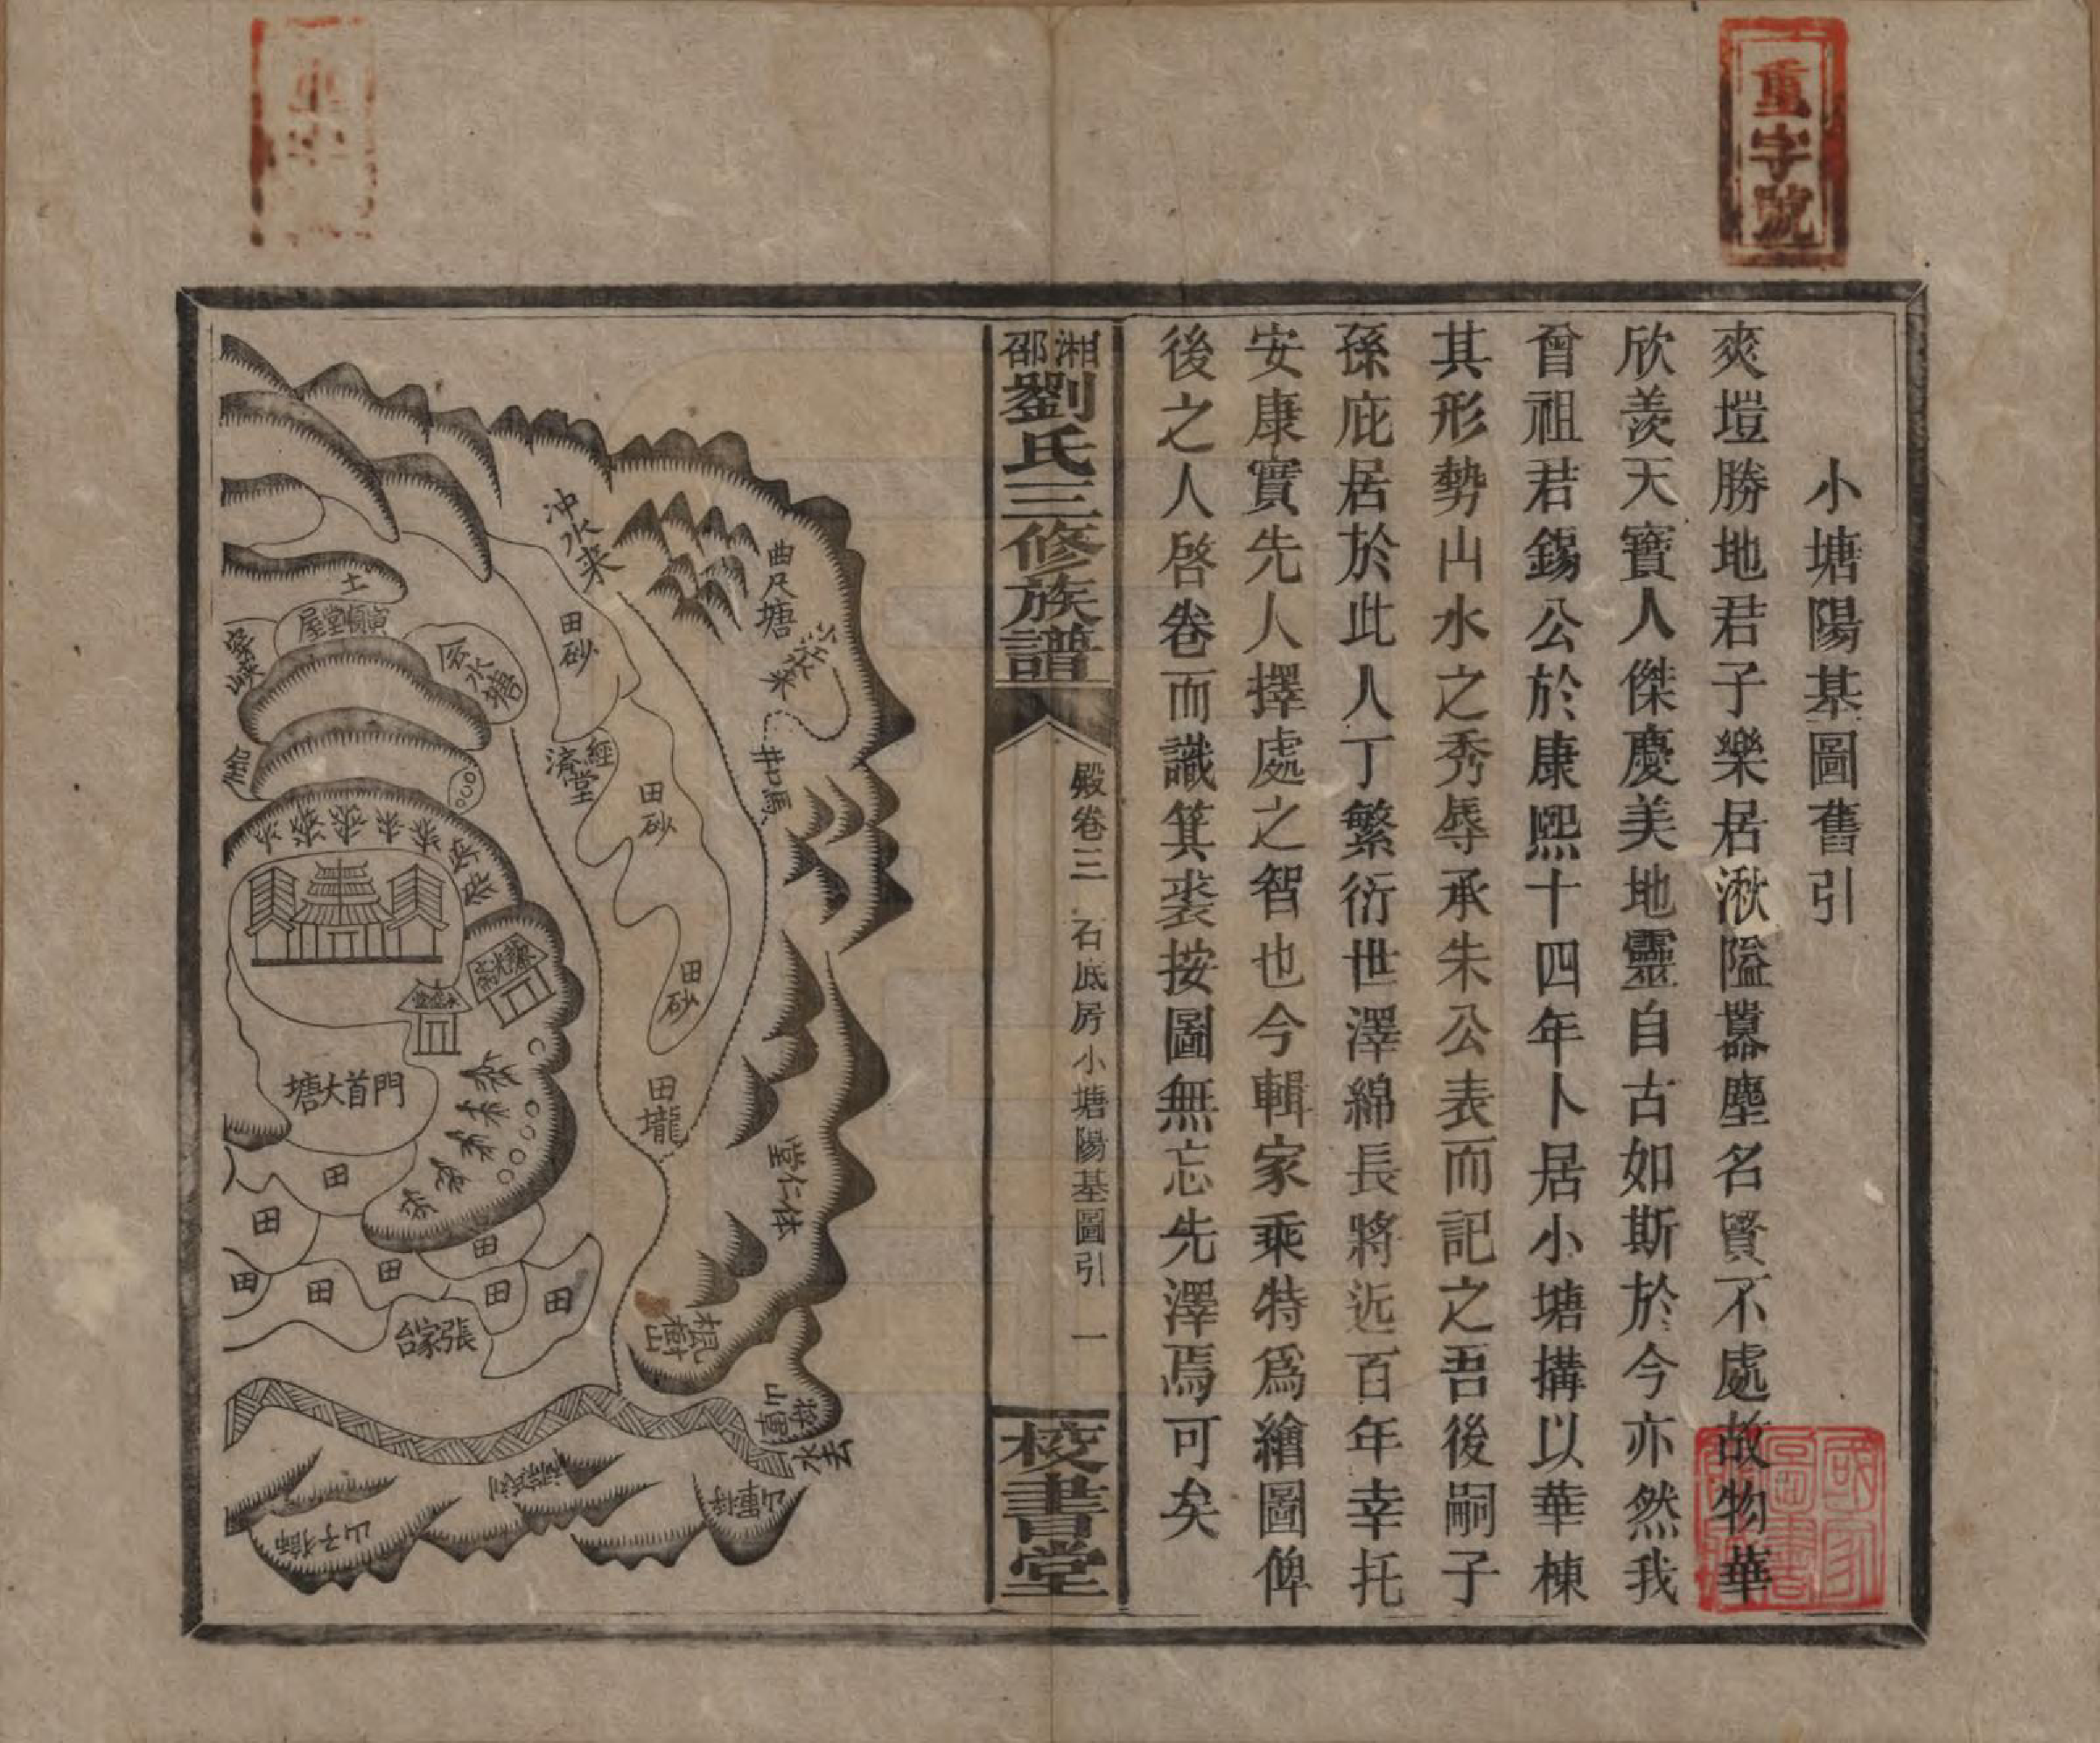 重字號
小塘陽基圖舊引
爽塏勝地君子樂居湫隘嚣塵名賢不處故物華
欣羨天寶人傑慶美地靈自古如斯於今亦然我
曾祖君錫公於康熙十四年卜居小塘搆以華棟
其形勢山水之秀辱承朱公表而記之吾後嗣子
孫庇居於此人丁繁衍世澤綿長將近百年幸托
安康實先人擇處之智也今輯家乘特爲繪圖俾
後之人啓卷而識箕裘按圖無忘先澤焉可矣
湘邵劉氏三修族譜
殿卷三 石底房小塘陽基圖引 一
校書堂
冲水来
曲尺塘
田砂
土
寅順堂屋
經濟堂
田砂
田砂
田壠
門首大塘
堂仁体
楓樹山
田
田
田
田
田
田
田
田
張家台
水去
獅子山